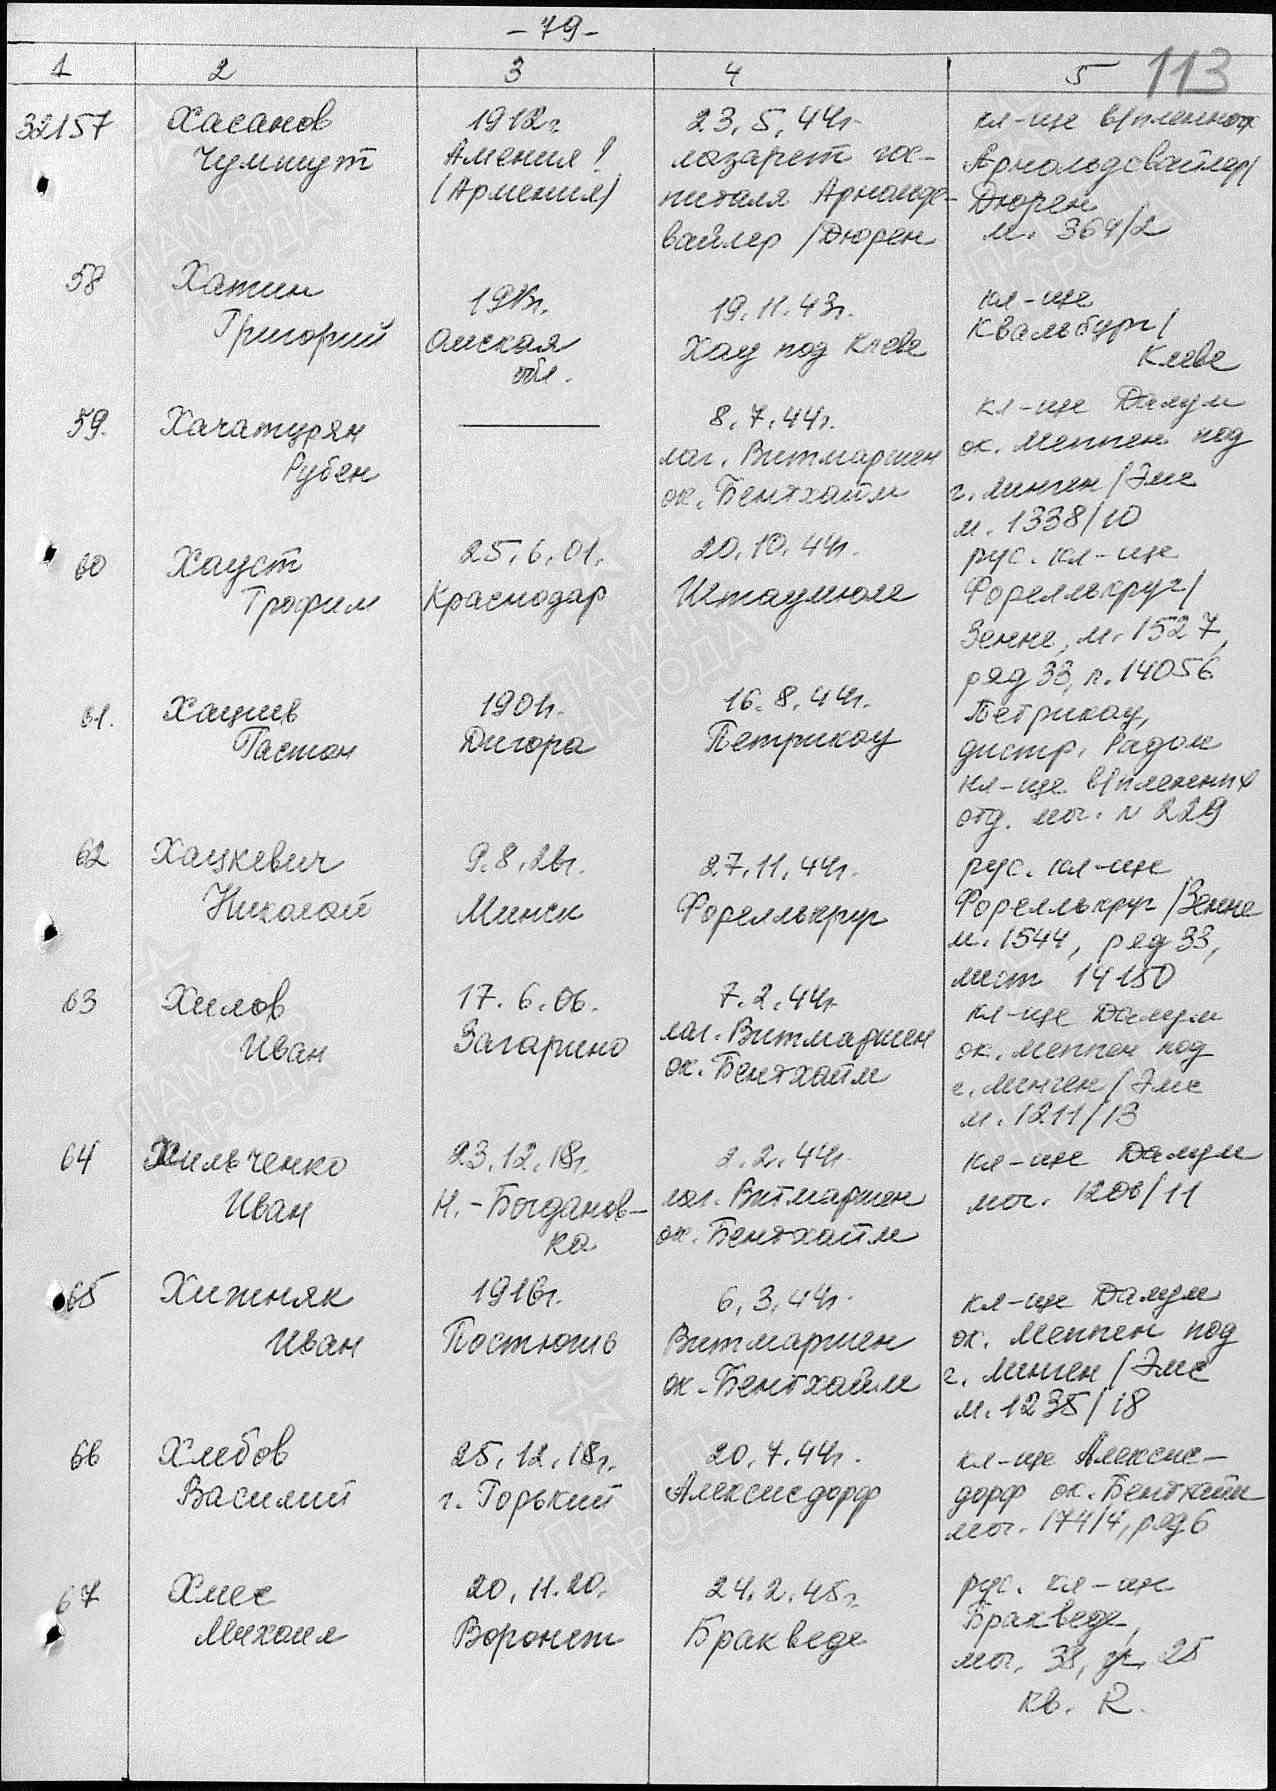 -79-
113
1 2 3 4 5
32157
Хасанов
Чумшут
1912г.
Амения!
(Армения)
23.5.44г.
лазарет гос-
питаля Арнольдс-
вайлер/Дюрен
кл-ще в/пленных
Арнольдсвайлер/
Дюрен
м. 364/2
58
Хатин
Григорий
Омская
обл.
19.11.43г.
Хау под Клеве
кл-ще
Квальбург/
Клеве
59.
Хачатурян
Рубен
8.7.44г.
лаг. Витмаршен
ок. Бентхайм
кл-ще Далум
ок. Меппен под
г. Линген/Эмс
м. 1338/10
60
Хауст
Трофим
25.6.01.
Краснодар
20.10.44г.
Штаумюле
рус. кл-ще
Фореллькруг/
Зенне, м. 1527,
ряд 33, п. 14056
61.
Хациев
Гастон
1901г.
Дигора
16.8.44г.
Петрикау
Петрикау,
дистр. Радом
кл-ще в/пленных
отд. мог. N 229
62
Хацкевич
Николай
9.8.21г.
Минск
27.11.44г.
Фореллькруг
рус. кл-ще
Фореллькруг/Зенне
м. 1544, ряд 33,
лист 14150
63
Хилов
Иван
17.6.06.
Загарино
7.2.44г.
лаг. Витмаршен
ок. Бентхайм
кл-ще Далум
ок. Меппен под
г. Линген/Эмс
м. 1211/13
64
Хильченко
Иван
23.12.18г.
Н.-Богданов-
ка
2.2.44г.
лаг. Витмаршен
ок. Бентхайм
кл-ще Далум
мог. 1206/11
65
Хижняк
Иван
1916г.
6.3.44г.
Витмаршен
ок. Бентхайм
кл-ще Далум
ок. Меппен под
г. Линген/Эмс
м. 1235/18
66
Хлебов
Василий
25.12.18г.
г. Горький
20.7.44г.
Алексисдорф
кл-ще Алексис-
дорф ок. Бентхайм
мог. 174/4, ряд 6
67
Хмес
Михаил
20.11.20.
Воронеж
24.2.45г.
Браквeде
рус. кл-ще
Бракведе,
мог. 38, 25
кв. R.
ПАМЯТЬ
НАРОДА